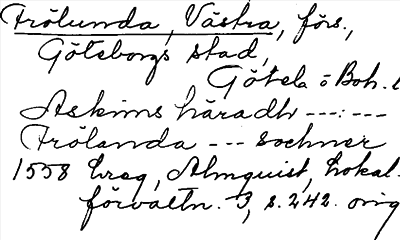 Frölunda, Västra, förs.,
Göteborgs stad,
Götela ö Boh. l
Askims häradh ---:---
Frölanda --- sochner
1558 breg, Almquist, Lokal-
förvaltn. 3, s. 242. orig